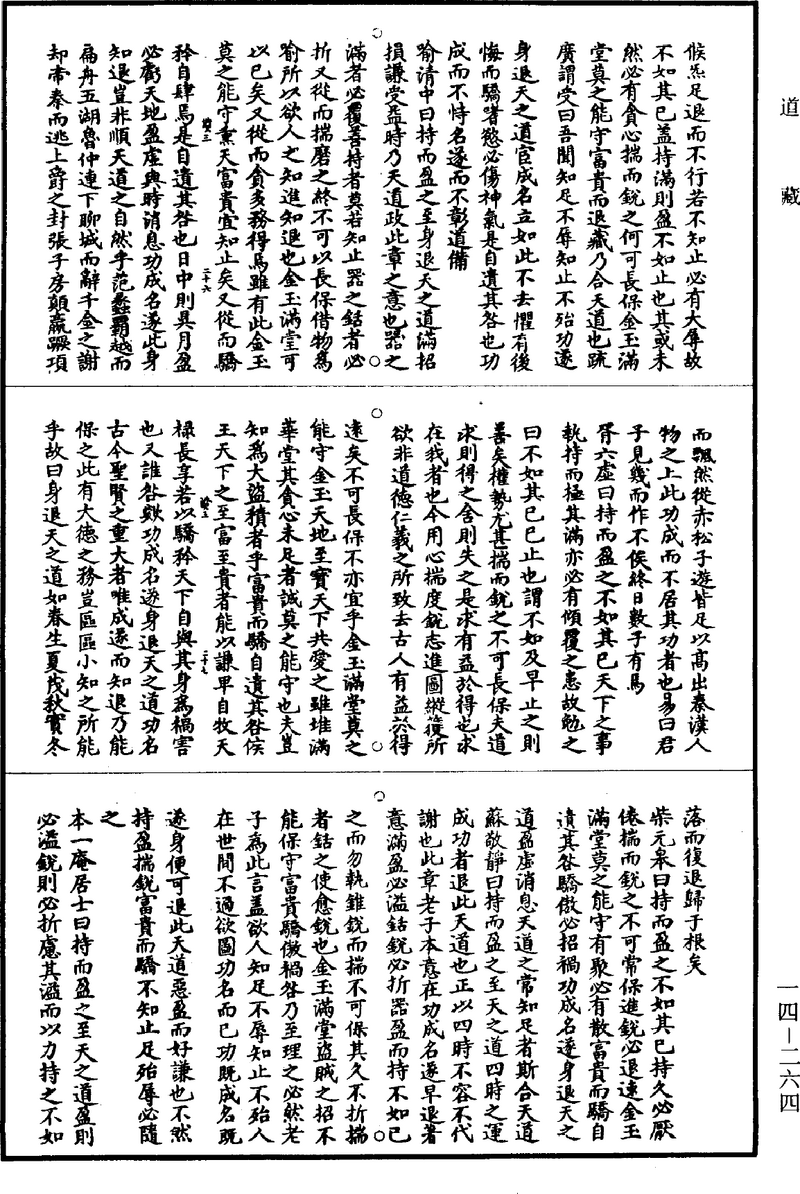 道藏
候炁足退而不行若不知止必有大辱故
不如其已蓋持滿則盈不如止也其或未
然必有貪心揣而銳之何可長保金玉滿
堂莫之能守富貴而退藏乃合天道也疏
廣謂受曰吾聞知足不辱知止不殆功遂
身退天之道宦成名立如此不去懼有後
悔而驕嗜慾必傷神氣是自遺其咎也功
成而不恃名遂而不彰道備
喻清中曰持而盈之至身退天之道滿招
損謙受益時乃天道政此章之意也器之
滿者必覆善持者莫若知止器之銛者必
折又從而揣磨之終不可以長保借物為
喻所以欲人之知進知退也金玉滿堂可
以已矣又從而貪多務得焉雖有此金玉
莫之能守熏天富貴宜知止矣又從而驕
矜自肆焉是自遺其咎也日中則昃月盈
必虧天地盈虛與時消息功成名遂此身
知退豈非順天道之自然乎范蠡霸越而
扁舟五湖魯仲連下聊城而辭千金之謝
却帝秦而逃上爵之封張子房顛嬴蹶項
而飄然從赤松子遊皆足以高出秦漢人
物之上此功成而不居其功者也易曰君
子見幾而作不俟終日數子有焉
胥六虛曰持而盈之不如其已天下之事
執持而極其滿亦必有傾覆之患故勉之
曰不如其已已止也謂不如及早止之則
善矣權勢尤甚揣而銳之不可長保夫道
求則得之舍則失之是求有益於得也求
在我者也今用心揣度銳志進圖縱獲所
欲非道德仁義之所致去古人有益於得
遠矣不可長保不亦宜乎金玉滿堂莫之
能守金玉天地至寶天下共愛之雖堆滿
華堂其貪心未足者誠莫之能守也夫豈
知為大盜積者乎富貴而驕自遺其咎侯
王天下之至富至貴者能以謙卑自牧天
祿長享若以驕矜天下自與其身為禍害
也又誰咎歟功成名遂身退天之道功名
古今聖賢之重大者唯成遂而知退乃能
保之此有大德之務豈區區小知之所能
乎故曰身退天之道如春生夏茂秋實冬
落而復退歸于根矣
柴元皋曰持而盈之不如其已持久必厭
倦揣而銳之不可常保進銳必退速金玉
滿堂莫之能守有聚必有散富貴而驕自
遺其咎驕傲必招禍功成名遂身退天之
道盈虛消息天道之常知足者斯合天道
蘇敬靜曰持而盈之至天之道四時之運
成功者退此天道也正以四時不容不代
謝也此章老子本意在功成名遂早退著
意滿盈必溢銛銳必折器盈而持不如已
之而勿執錐銳而揣不可保其久不折揣
者銛之使愈銳也金玉滿堂盜賊之招不
能保守富貴驕傲禍咎乃至理之必然老
子為此言蓋欲人知足不辱知止不殆人
在世間不過欲圖功名而已功既成名既
遂身便可退此天道惡盈而好謙也不然
持盈揣銳富貴而驕不知止足殆辱必隨
之
本一庵居士曰持而盈之至天之道盈則
必溢銳則必折慮其溢而以力持之不如
一四－二六四